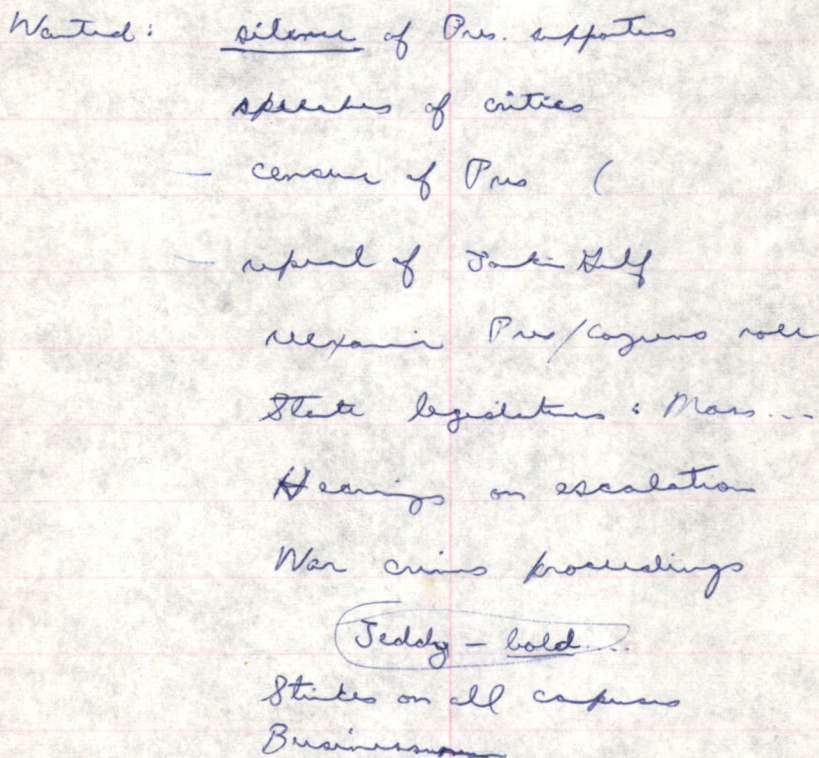 Wanted: silence of Pres. supporters
speeches of critics
— censure of Pres (
— repeal of Tonkin Gulf
reexamine Pres/Congress role
State legislatures: Mass...
Hearings on escalation
War crimes proceedings
Teddy - bold...
Strikes on all campuses
Businessmen